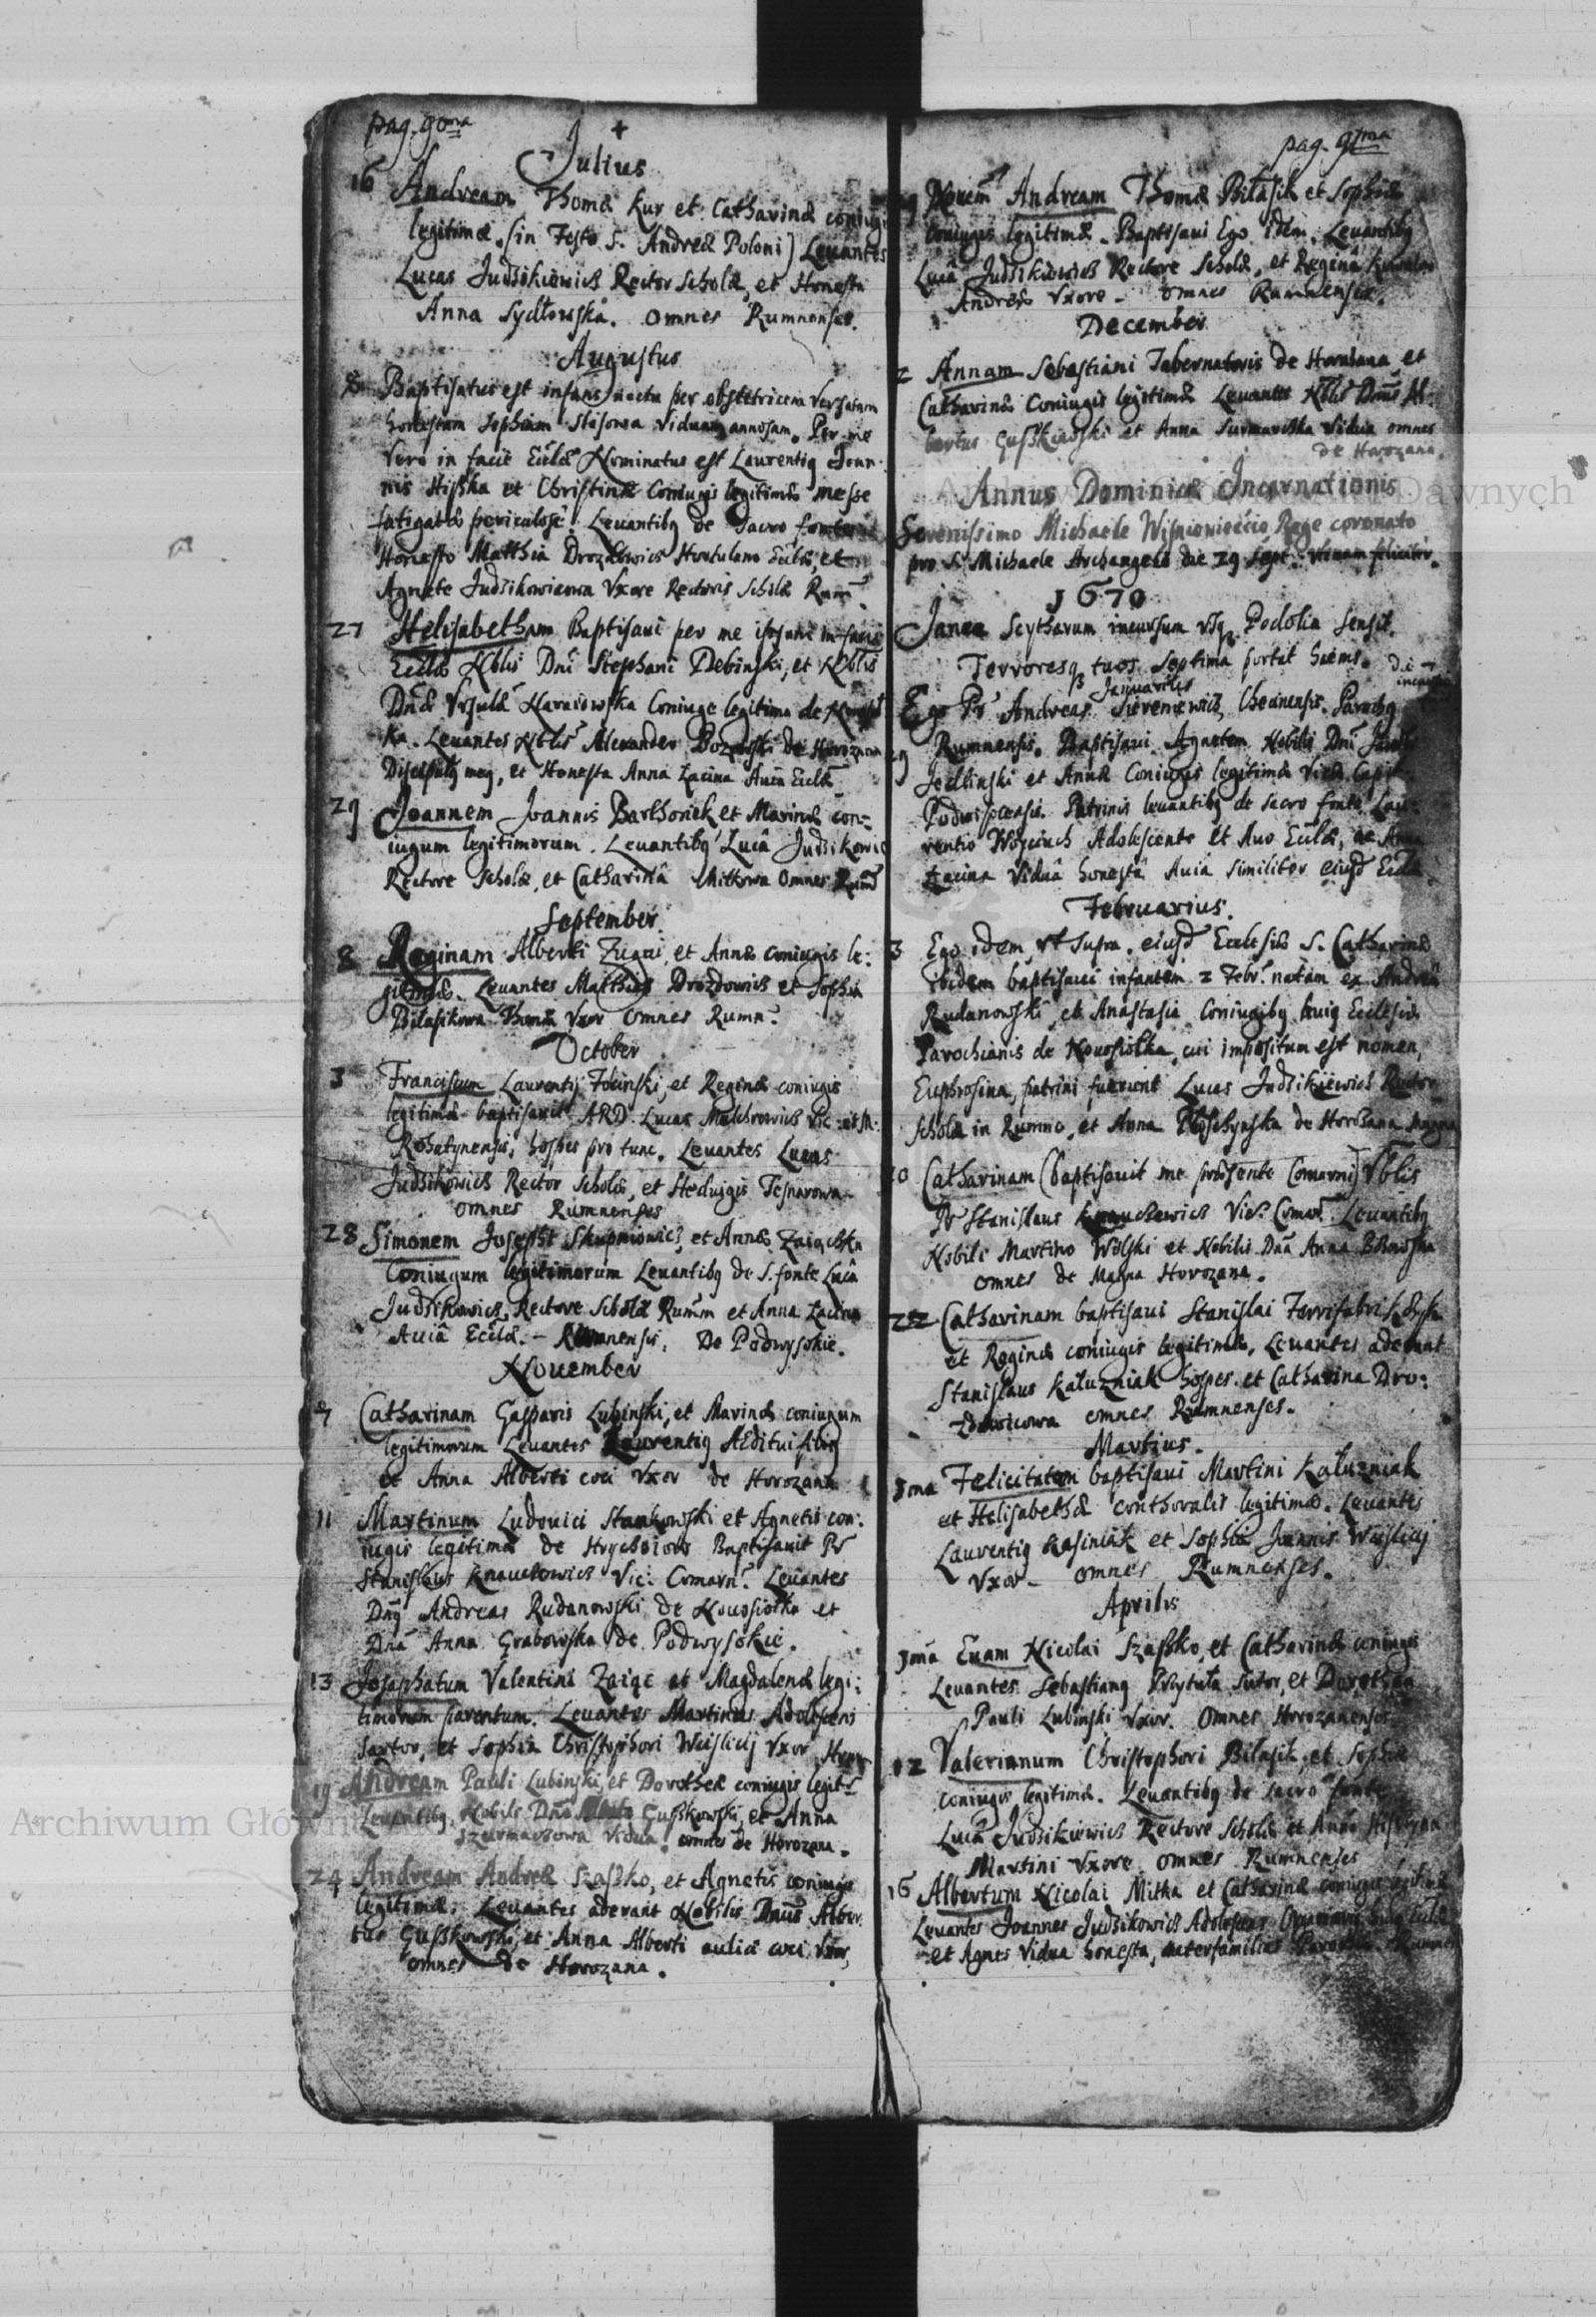 pag. 90ma
Julius
16 Andream Thomæ Kur et Catharinæ coniugis
legitimæ. (in Festo S. Andreæ Poloni) Levantes
Lucas Judzikiewicz Rector Scholæ, et Honesta
Anna Sydłowska. omnes Rumnenses.
Augustus
Baptisatus est infans noctu per obstetricem versatam
honestam Sophiam Viduam annosam. Per me
vero in facie Eccłæ Nominatus est Laurentiq Joan-
nis Hiszka et Christinæ Coniugis legitimæ messe
fatigatæ periculosè. Levantibq de sacro fonte
Honesto Matthia Drozdowicz Hortulano Eccłæ, et
Agnete Judzikowicowa Vxore Rectoris Scholæ Rum.
27 Helisabetham Baptisaui per me ipsum in facie
Eccłæ Nblis Dni Stephani Debinski, et Nblis
Dnæ Vrsulæ Karniowska Coniuge legitima de
ka. Levantes Nblis Alexander de Horozana
Discipulq meq, et Honesta Anna Łacina Auia Eccłæ
29 Joannem Joannis Barthosiek et Marinæ con-
iugum legitimorum. Levantibq Lucâ Judzikowic
Rectore Scholæ, et Catharinâ Mitkowa Omnes Rumn
September
8 Reginam Alberti Zuga, et Annæ coniugis le:
gitimæ. Levantes Matthias Drozdowicz et Sophia
Bilasikowa Thomæ Vxor omnes Rumn.
October
3 Franciscum Laurentij Focinski, et Reginæ coniugis
legitimæ baptisauit ARD. Lucas Melchrowicz Vic:
Rohatynensis, hospes pro tunc. Levantes Lucas
Judzikowicz Rector Scholæ, et Heduigis Tesnarowa
omnes Rumnenses
28 Simonem Josephi Skupniowicz, et Annæ Zaiączka
Coniugum legitimorum Levantibq de S. fonte Lucâ
Judzikowicz Rectore Scholæ Rumn et Anna Łacina
Auiâ Eccłæ. - Rumnensis. De Podwysokie.
Nouember
7 Catharinam Gasparis Lubinski, et Marinæ coniugum
legitimorum Levantes Laurentiq Æditui filiq
et Anna Alberti coci Vxor de Horozana
11 Martinum Ludouici Stankowski et Agnetis con:
iugis legitimæ de Hrychoiow Baptisauit Pr
Stanislaus Knauckowicz Vic: Comarn. Levantes
Dnq Andreas Rudanowski de Nouosiołka et
Dna Anna Grabowska de Podwysokie.
13 Josaphatum Valentini Zaiąc et Magdalenæ legi:
timorum parentum. Levantes Martinus Adolescens
Sartor, et Sophia Christophori Wcislicij Vxor
19 Andream Pauli Lubinski, et Dorotheæ coniugis legit
Levantibq Nobile Dno Guszkowski, et Anna
Szurmaczowa Vidua omnes de Horozana.
24 Andream Andreæ Szaszko, et Agnetis coniugis
legitimæ. Levantes aderant Nobilis Dnus Alber
tus Guszkowski, et Anna Alberti aulici coci Vxor,
omnes de Horozana.
pag. 91ma
Nouem Andream Thomæ Bilasik et Sophiæ
coniugis legitimæ. Baptisaui Ego idem. Levantibq
Lucâ Judzikiewicz Rectore Scholæ, et Reginâ
Andreæ Vxore - omnes Rumnenses.
December
2 Annam Sebastiani Tabernatoris de Horozana et
Catharinæ Coniugis legitimæ Levantes Nblis Dnus Al:
bertus Guszkowski et Anna Surmaczka Vidua omnes
de Horozana.
Annus Dominicæ Incarnationis
Serenissimo Michaele Wisniowieccio Rege coronato
pro S. Michaele Archangelo die 29 Sept. vtinam feliciter.
1670
Janea Scytharum incursum vsq Podolia sensit.
Terroresq tuos septima portat hiems.
Januarius
Ego Pr Andreas Siereniewicz, Cheimensis. Parochq
Rumnensis. Baptisaui Agnetem Nobilis Dni
Jedlinski et Annæ Coniugis legitimæ Vice Capit
Podwisocensis. Patrinis levantibq de sacro fonte Lau-
rentio Woyciech Adolescente et Auo Eccłæ, ac Anna
Łacina Viduâ honestâ Auia similiter eiusd Eccłæ
Februarius.
3 Ego idem vt supra. eiusd Ecclesiæ S. Catharinæ
ibidem baptisaui infantem 2 Febr. natam ex Andreâ
Rudanowski, et Anastasia Coniugibq huiq Ecclesiæ
Parochianis de Nouosiołka, cui impositum est nomen,
Euphrosina, patrini fuerunt Lucas Judzikiewicz Rector
Scholæ in Rumno, et Anna de Horozana Magna
10 Catharinam (baptisauit me præsente Comarni) Nblis
Pr Stanislaus Knauckewicz Vic. Comar. Levantibq
Nobile Martino Wolski et Nobilis Dna Anna
omnes de Magna Horozana.
22 Catharinam baptisaui Stanislai Ferrifabri
et Reginæ coniugis legitimæ, Levantes aderant
Stanislaus Kałuzniak hospes et Catharina Dro:
zdowicowa omnes Rumnenses.
Martius.
1ma Felicitatem baptisaui Martini Kałuzniak
et Helisabethæ conthoralis legitimæ. Levantes
Laurentiq Kasiniak et Sophia Joannis Wcislicij
Vxor - omnes Rumnenses.
Aprilis
1ma Euam Nicolai Szaszko, et Catharinæ coniugis
Levantes Sebastianq Sutor, et Dorothea
Pauli Lubinski Vxor. Omnes Horozanenses
12 Valerianum Christophori Bilasik, et Sophiæ
coniugis legitimæ. Levantibq de sacro fonte
Lucâ Judzikiewicz Rectore Scholæ et Anna
Martini Vxore omnes Rumnenses
16 Albertum Nicolai Mitka et Catharinæ coniugis legitimæ
Levantes Joannes Judzikowicz Adolescens
et Agnes Vidua honesta, materfamilias
Archiwum Główne Akt Dawnych